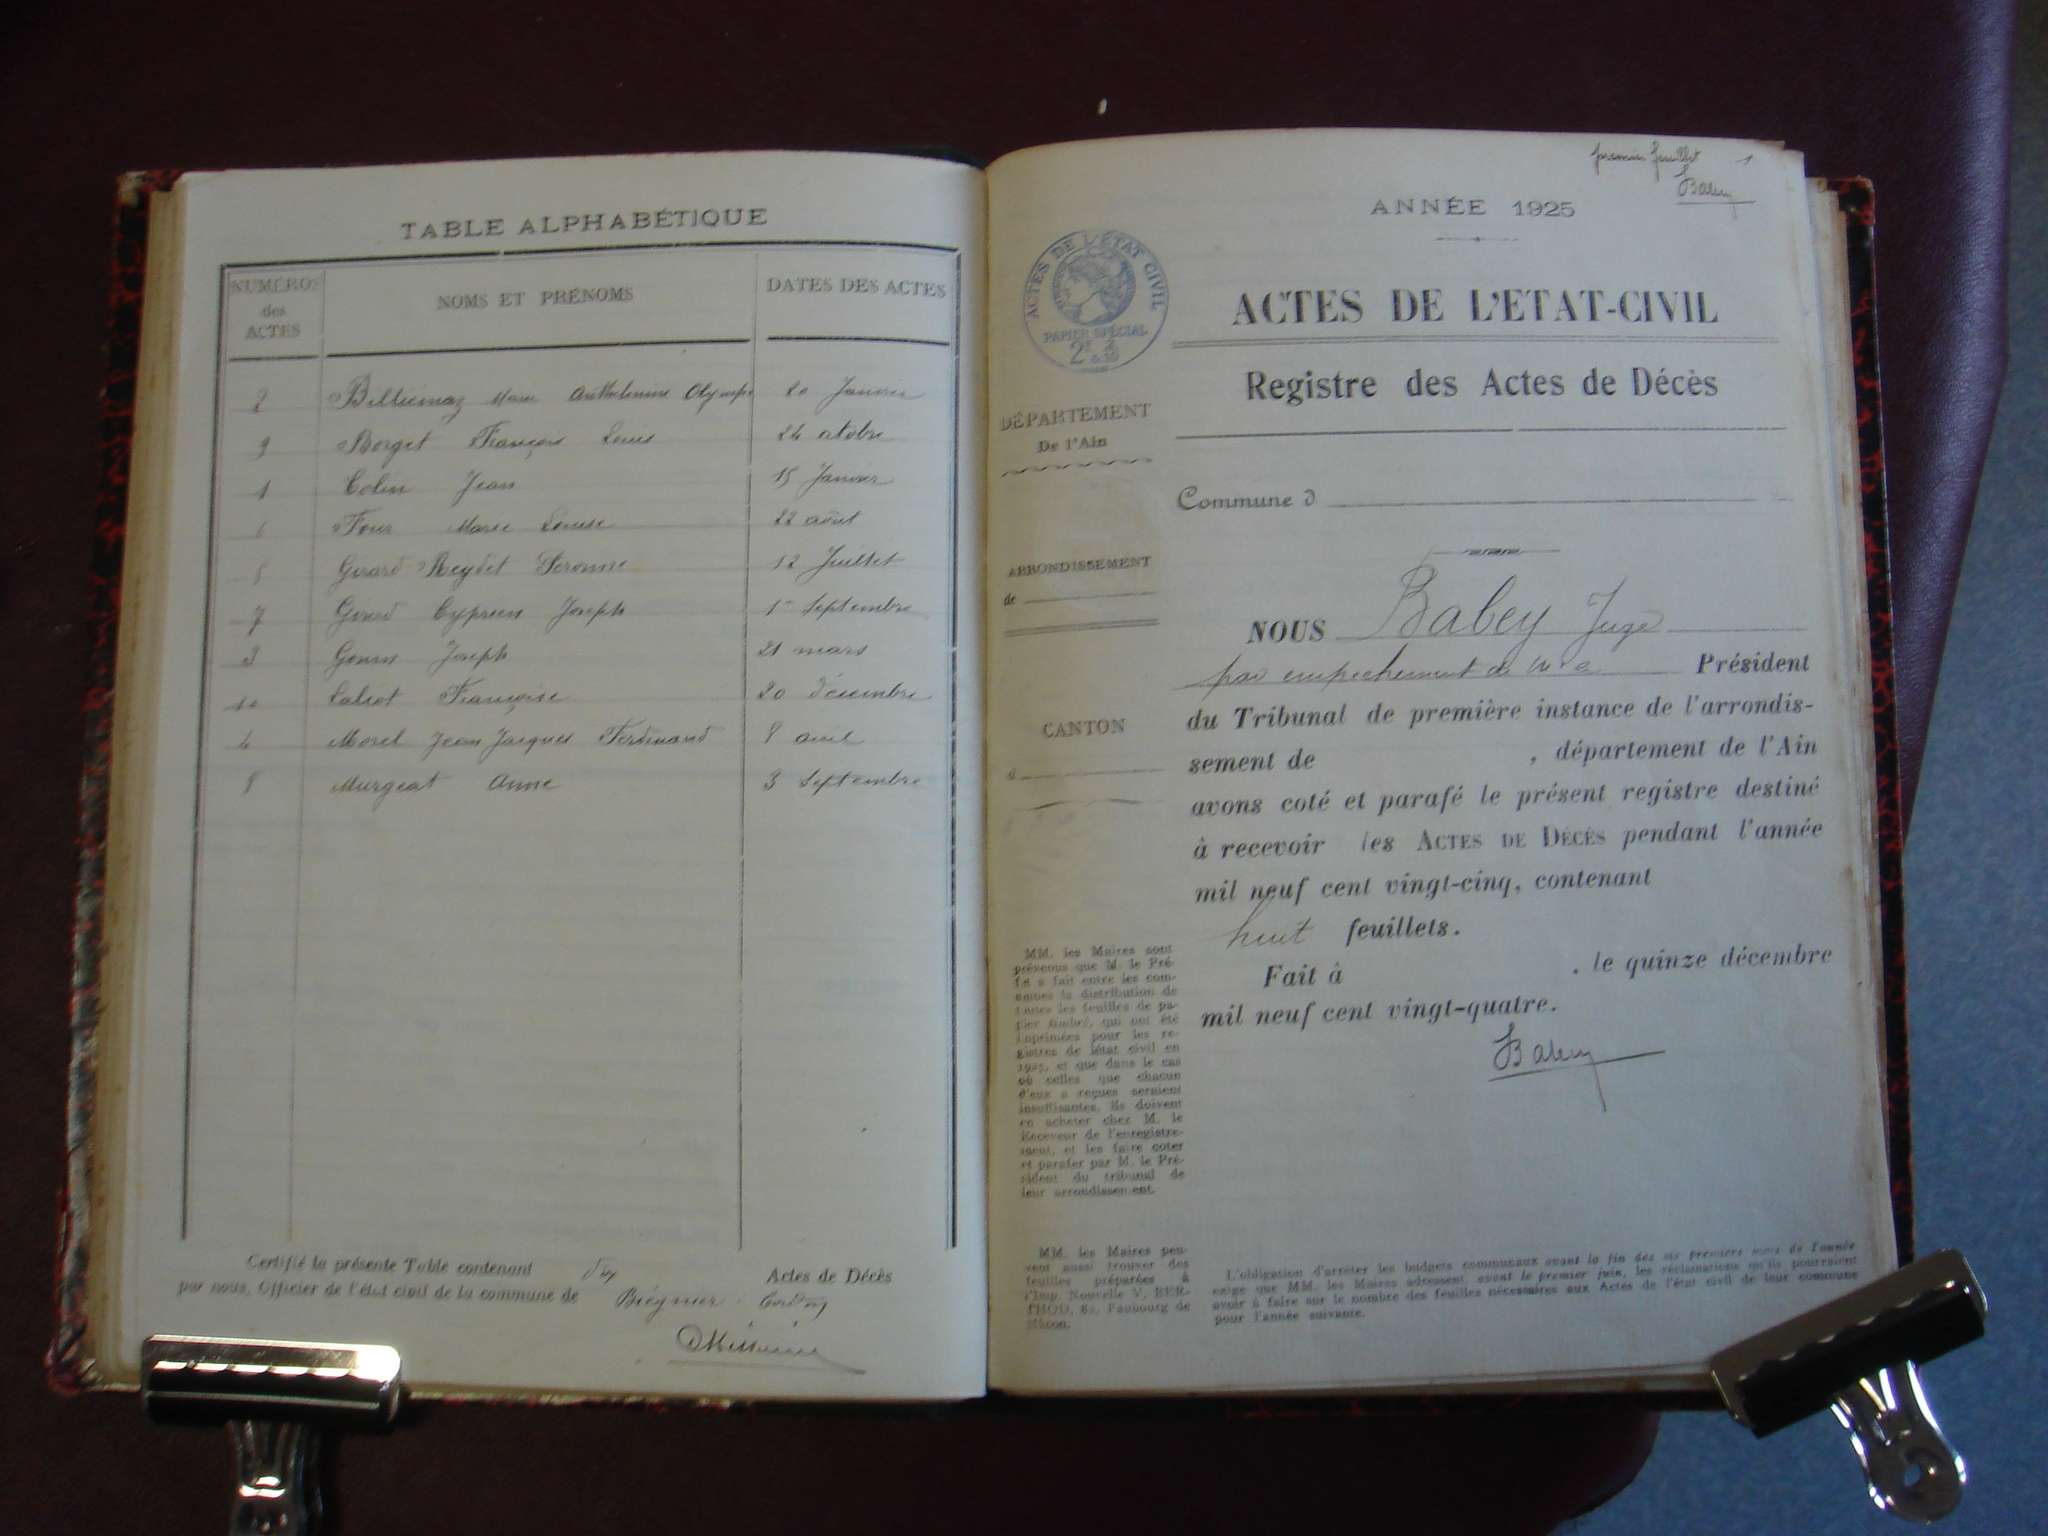 TABLE ALPHABÉTIQUE
NUMÉROS des ACTES
NOMS ET PRÉNOMS
DATES DES ACTES
2 Billiemaz Marie Anthelmine Olympe 20 Janvier
9 Borget François Louis 24 octobre
1 Colin Jean 15 Janvier
6 Four Marie Louise 22 août
5 Girard Reydet 12 Juillet
7 Girard Cyprien Joseph 1er Septembre
3 Joseph 21 mars
10 Françoise 20 décembre
4 Morel Jean Jacques Ferdinand 8 avril
8 Murgeat Anne 3 Septembre
Certifié la présente Table contenant dix Actes de Décès
par nous, Officier de l'état civil de la commune de Brégnier Cordon
premier feuillet 1
Babey
ANNÉE 1925
ACTES DE L'ÉTAT CIVIL
PAPIER SPÉCIAL
ACTES DE L'ETAT-CIVIL
Registre des Actes de Décès
DÉPARTEMENT
De l'Ain
Commune d
ARRONDISSEMENT
de
NOUS Babey Juge
par empêchement de Mr le Président
du Tribunal de première instance de l'arrondis-
sement de , département de l'Ain
avons coté et parafé le présent registre destiné
à recevoir les ACTES DE DÉCÈS pendant l'année
mil neuf cent vingt-cinq, contenant
huit feuillets.
Fait à , le quinze décembre
mil neuf cent vingt-quatre.
Babey
CANTON
d
MM. les Maires sont
prévenus que M. le Pré-
fet a fait entre les com-
munes la distribution de
toutes les feuilles de pa-
pier timbré, qui ont été
imprimées pour les re-
gistres de l'état civil en
1925, et que dans le cas
où celles que chacun
d'eux a reçues seraient
insuffisantes, ils doivent
en acheter chez M. le
Receveur de l'enregistre-
ment, et les faire coter
et parafer par M. le Pré-
sident du tribunal de
leur arrondissement.
MM. les Maires peu-
vent aussi trouver des
feuilles préparées à
l'Imp. Nouvelle V. BER-
THOD, 8, Faubourg de
Mâcon.
L'obligation d'arrêter les budgets communaux avant la fin des six premiers mois de l'année
exige que MM. les Maires adressent, avant le premier juin, les réclamations qu'ils pourraient
avoir à faire sur le nombre des feuilles nécessaires aux Actes de l'état civil de leur commune
pour l'année suivante.